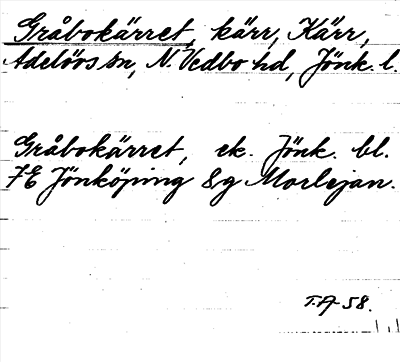 Gråbokärret, kärr, Kärr,
Adelövs sn, N. Vedbo hd, Jönk. l.
Gråbokärret, ek. Jönk. bl.
7E Jönköping 8g Morlejan.
T.A-58.